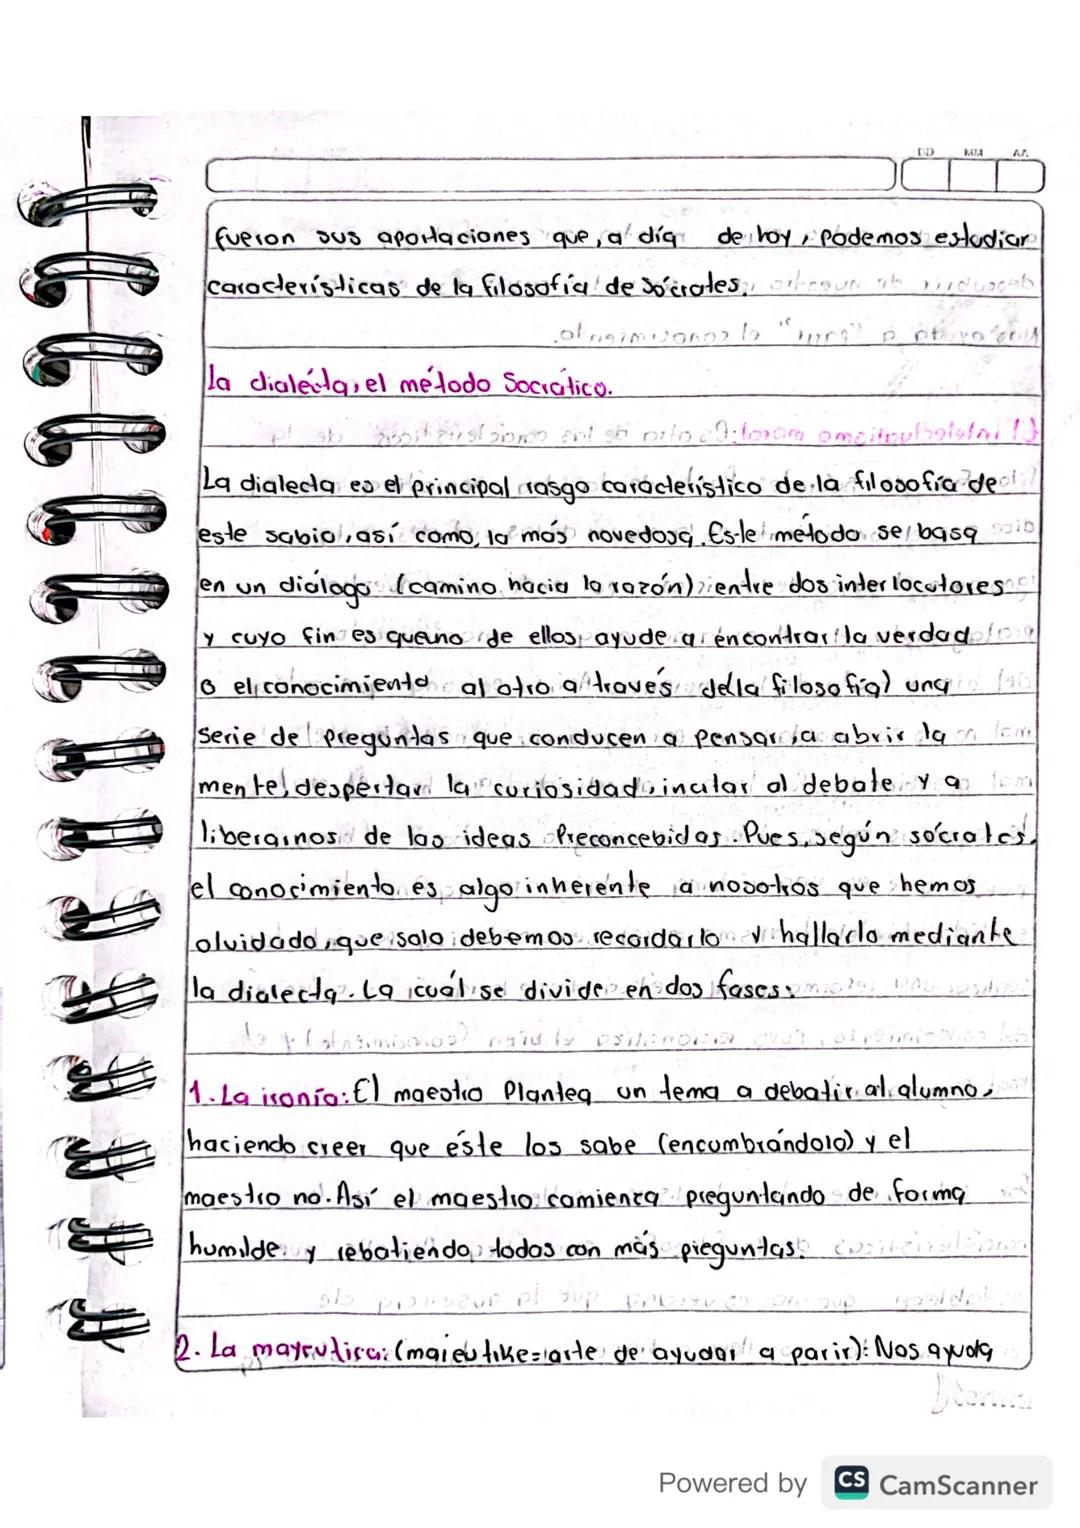 DD MM AA
fueron sus aportaciones que, a día de hoy, podemos estudiar
características de la filosofía de Sócrates.
la dialécta, el método Socrático.
La dialecta es el principal rasgo característico de la filosofía de
este sabio, así como, la más novedosa. Este método se basa
en un diálogo (camino hacia la razón) entre dos interlocutores
y cuyo fin es que uno de ellos ayude a encontrar la verdad
o el conocimiento al otro a través de la filosofía) una
serie de preguntas que conducen a pensar, a abrir la
mente, despertar la curiosidad, incular al debate y a
liberarnos de las ideas Preconcebidas. Pues, según sócrates,
el conocimiento es algo inherente a nosotros que hemos
olvidado, que solo debemos recordarlo y hallarlo mediante
la dialecta. La cuál se divide en dos fases:
1. La ironía: El maestro Plantea un tema a debatir al alumno,
haciendo creer que éste los sabe (encumbrándolo) y el
maestro no. Así el maestro comienza preguntando de forma
humilde y rebatiendo todas con más preguntas.
2. La mayeutica: (maieutike=arte de ayudar a parir): Nos ayuda
Powered by CS CamScanner